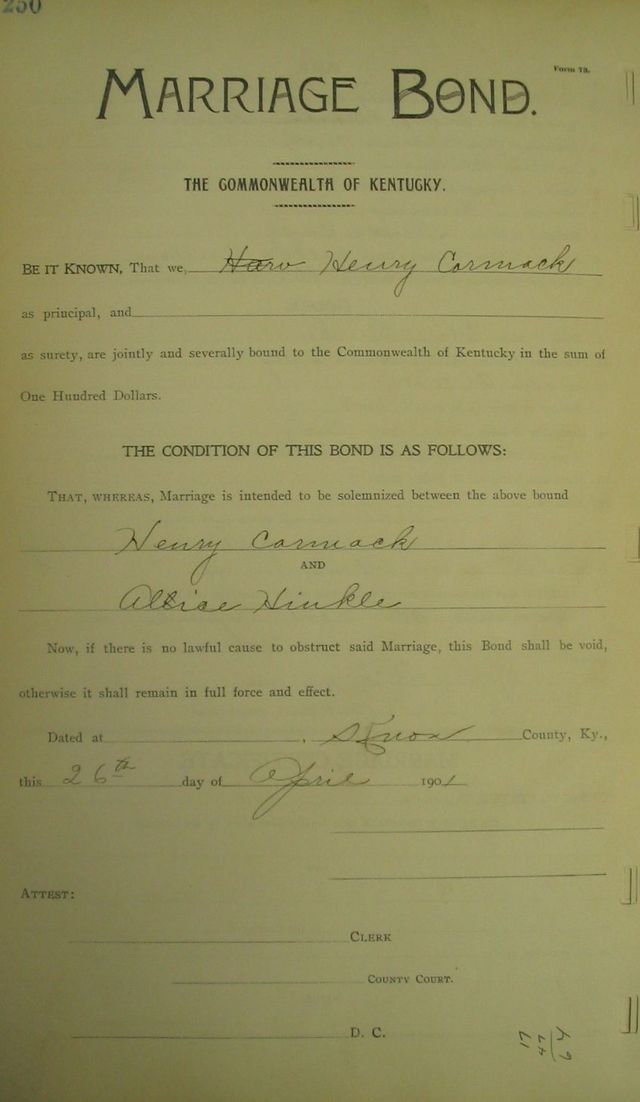 250
Form 73.
MARRIAGE BOND.
THE COMMONWEALTH OF KENTUCKY.
BE IT KNOWN, That we, Henry Cormack
as principal, and
as surety, are jointly and severally bound to the Commonwealth of Kentucky in the sum of
One Hundred Dollars.
THE CONDITION OF THIS BOND IS AS FOLLOWS:
THAT, WHEREAS, Marriage is intended to be solemnized between the above bound
Henry Cormack
AND
Hinkle
Now, if there is no lawful cause to obstruct said Marriage, this Bond shall be void,
otherwise it shall remain in full force and effect.
Dated at , Knox County, Ky.,
this 26th day of April 1901
ATTEST:
CLERK
COUNTY COURT.
D. C.